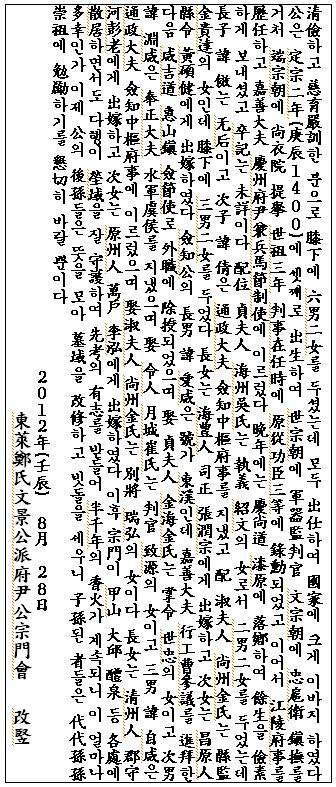 清儉하고 慈育嚴訓한 분으로 膝下에 六男二女를 두셨는데 모두 出仕하여 國家에 크게 이바지 하였다
公은 定宗二年(庚辰1400)에 셋째로 出生하여 世宗朝에 軍器監判官 文宗朝에 忠扈衛 鎭撫를
거쳐 端宗朝에 尙衣院 提擧 世祖三年 判事在任時에 原從功臣三等에 錄勳되었고 이어서 江陵府事를
歷任하고 嘉善大夫 慶州府尹兼兵馬節制使에 이르렀다 晩年에는 慶尙道 漆原에 落鄕하여 餘生을 儉素
하게 보내셨고 卒記는 未詳이다 配位 貞夫人 海州吳氏는 執義 紹文의 女로서 二男二女를 두었는데
長子 諱 는 无后이고 次子 諱 倩은 通政大夫 僉知中樞府事를 지냈고 配 淑夫人 尙州金氏는 縣監
金貴達의 女인데 膝下에 三男二女를 두었다 長女는 海豊人 司正 張潤宗에게 出嫁하고 次女는 昌原人
縣令 黃碩健에게 出嫁하였다 僉知公의 長男 諱 愛咸은 號가 東溪인데 嘉善大夫 行工曹參議를 進拜한
다음 咸吉道 惠山鎭 僉節使로 外職에 除授되었으며 娶 貞夫人 金海金氏는 掌令 世忠의 女이고 次男
諱 淵咸은 奉正大夫 水軍虞侯를 지냈으며 娶 令人 月城崔氏는 判官 致源의 女이고 三男 諱 自咸은
通政大夫 僉知中樞府事에 이르렀으며 娶 淑夫人 尙州金氏는 別將 瑞弘의 女이다 長女는 淸州人 郡守
河彭老에게 出嫁하고 次女는 原州人 萬戶 李泓에게 出嫁하였다 이후 宗門이 甲山 大邱 醴泉等 各處에
散居하면서도 다행이 塋域을 잘 守護하여 先考의 有志를 받들어 半千年의 香火가 계속되니 이 얼마나
多幸인가 이제 公의 後孫들은 뜻을 모아 墓域을 改修하고 빗돌을 세우니 子孫된 者들은 代代孫孫
崇祖에 勉勵하기를 懇切히 바랄 뿐이다
2012年(壬辰) 8月 28日
東萊鄭氏文景公派府尹公宗門會 改竪